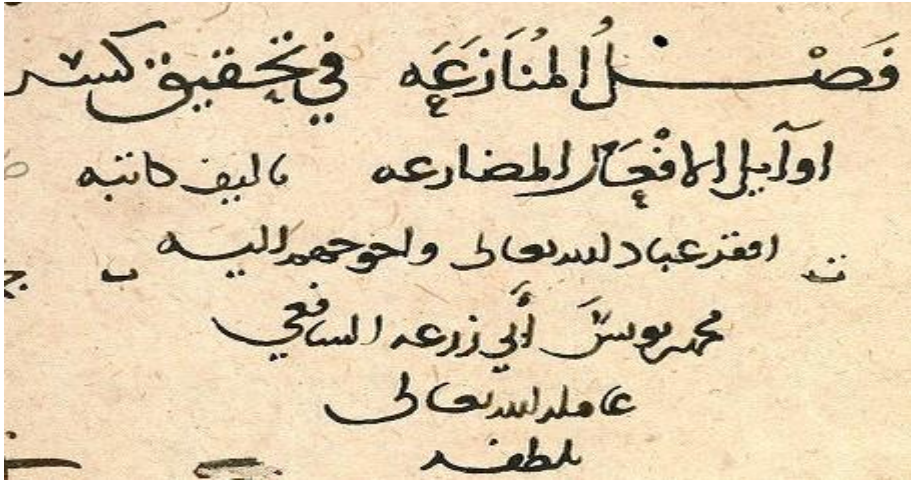 فَصْلُ المُنَازَعَه في تحقيق كسر
اوآيل الافعَال المضارعه تاليف كاتبه
افقر عباد الله تعالى واحوجهم اليه
محمد بن أبي زرعه الشافعي
عامله الله تعالى
بلطفه